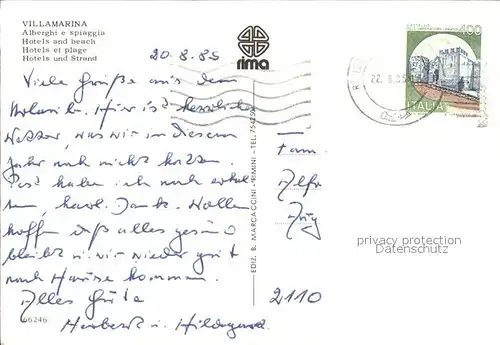 VILLAMARINA
Alberghi e spiaggia
Hotels and beach
Hotels et plage
Hotels und Strand
20.8.85
rima
400
22.8.85
ITALIA
Viele Grüße aus dem
Urlaub. Hier ist herrliches
Wetter, was wir in diesem
Jahr noch nicht hatten.
Post haben ich noch erhal
ten, herzl. Dank. Wollen
hoffen daß alles gesund
bleibt u. wir wieder gut
nach Hause kommen.
Alles Gute
Herbert u. Hildegard
66246
EDIZ. B. MARCACCINI - RIMINI - TEL.
Fam.
2110
privacy protection
Datenschutz